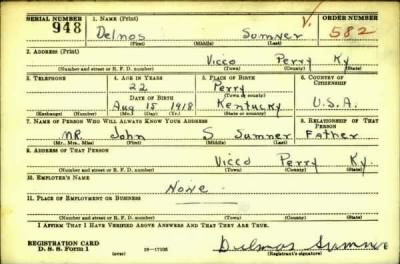 SERIAL NUMBER 1. NAME (Print) ORDER NUMBER
948 Delmos Sumner 582
(First) (Middle) (Last)
2. ADDRESS (Print)
Vicco Perry Ky
(Number and street or R. F. D. number) (Town) (County) (State)
3. TELEPHONE 4. AGE IN YEARS 5. PLACE OF BIRTH 6. COUNTRY OF CITIZENSHIP
22 Perry
DATE OF BIRTH (Town or county)
Aug 15 1918 Kentucky U.S.A.
(Exchange) (Number) (Mo.) (Day) (Yr.) (State or country)
7. NAME OF PERSON WHO WILL ALWAYS KNOW YOUR ADDRESS 8. RELATIONSHIP OF THAT PERSON
MR. John S Sumner Father
(Mr., Mrs., Miss) (First) (Middle) (Last)
9. ADDRESS OF THAT PERSON
Vicco Perry Ky.
(Number and street or R. F. D. number) (Town) (County) (State)
10. EMPLOYER'S NAME
None
11. PLACE OF EMPLOYMENT OR BUSINESS
(Number and street or R. F. D. number) (Town) (County) (State)
I AFFIRM THAT I HAVE VERIFIED ABOVE ANSWERS AND THAT THEY ARE TRUE.
REGISTRATION CARD
D. S. S. Form 1 (over) Delmos Sumner
(Registrant's signature)